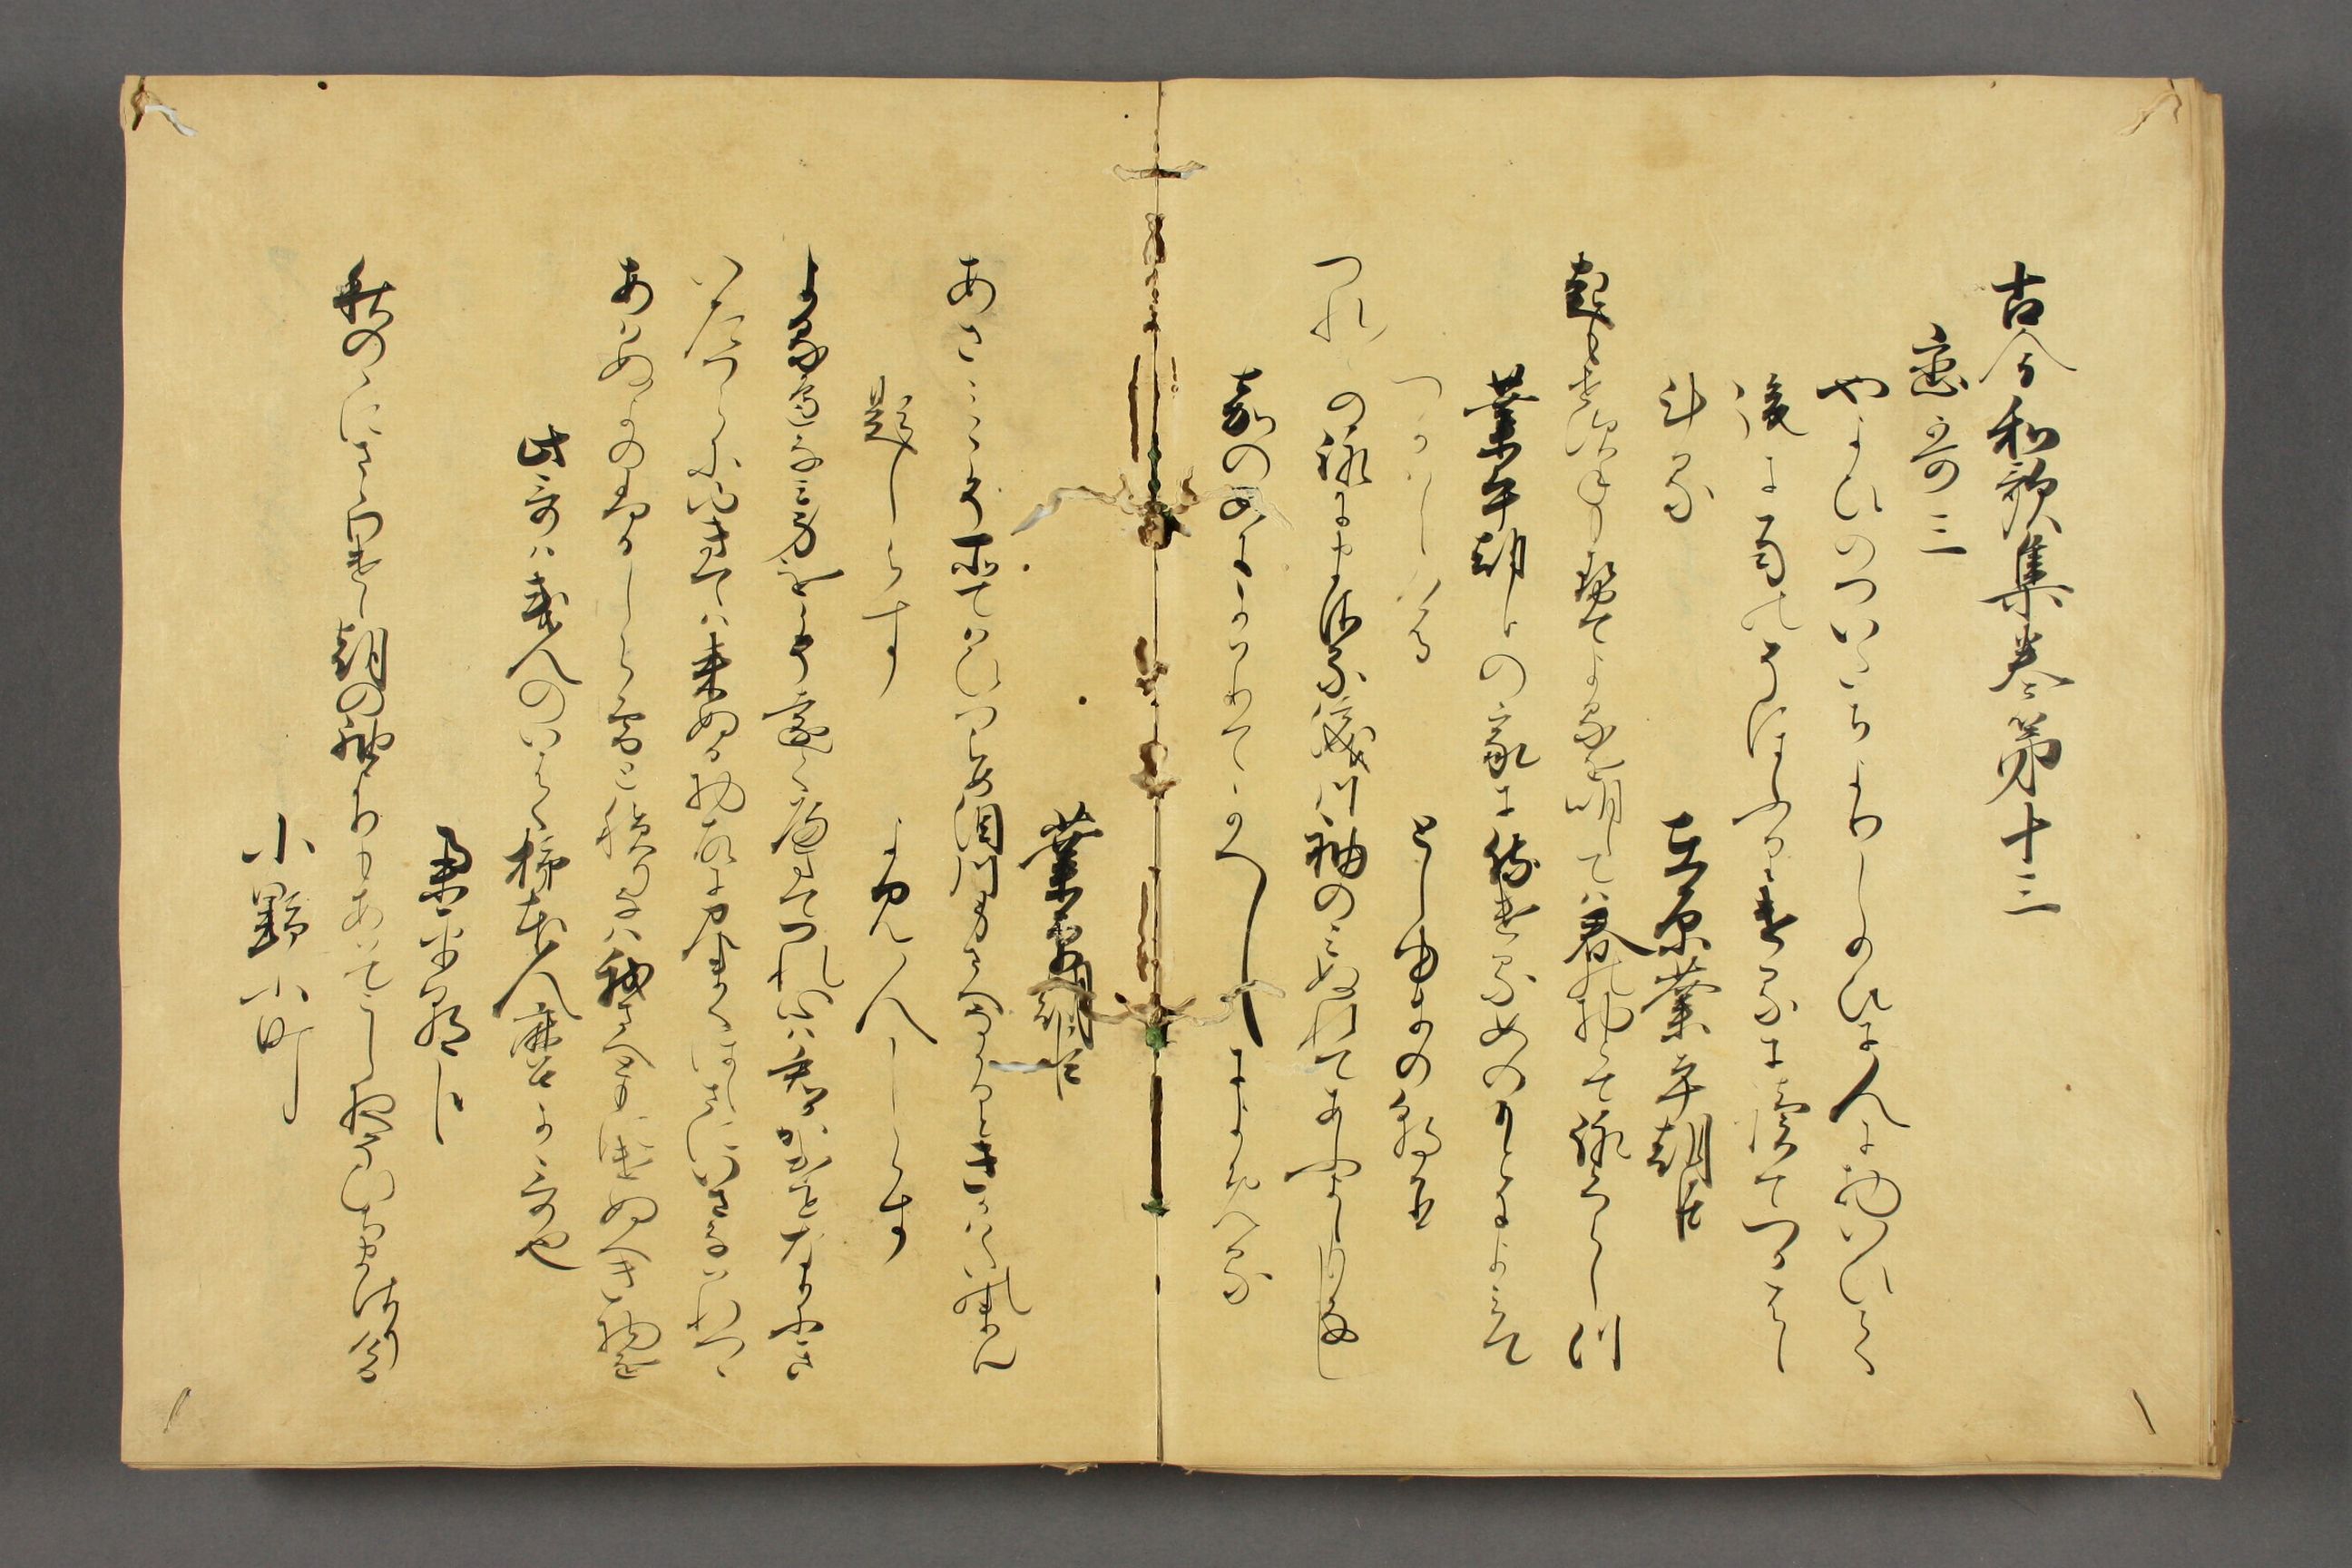 古今和歌集巻第十三
恋哥三
やよひのついたちよりしのひに人に物いひて
後に雨のそほふりけるに讀てつかはし
ける
在原業平朝臣
起もせすねもせて夜を明しては春の物とて詠くらしつ
業平朝臣の家に侍ける女のもとによみて
つかはしける
としゆきの朝臣
つれ〳〵の詠にまさる涙川袖のみぬれてあふよしもなし
かの女にかはりて、かへしによめる
業平朝臣
あさみこそ袖はひつらめ泪川身さへなかるときかはたのまん
題しらす
よみ人しらす
よるへなみ身をこそ遠く隔てつれ心は君か影となりにき
いたつらに行きては来ぬる物ゆへに見まくほしさにいさなはれつゝ
あはぬよのふるしら雪と積りなは我さへともに消ぬへき物を
此哥は或人のいはく柿本人麿か哥也
業平朝臣
秋のゝにさゝわけし朝の袖よりもあはてこしよそひちまさりける
小野小町